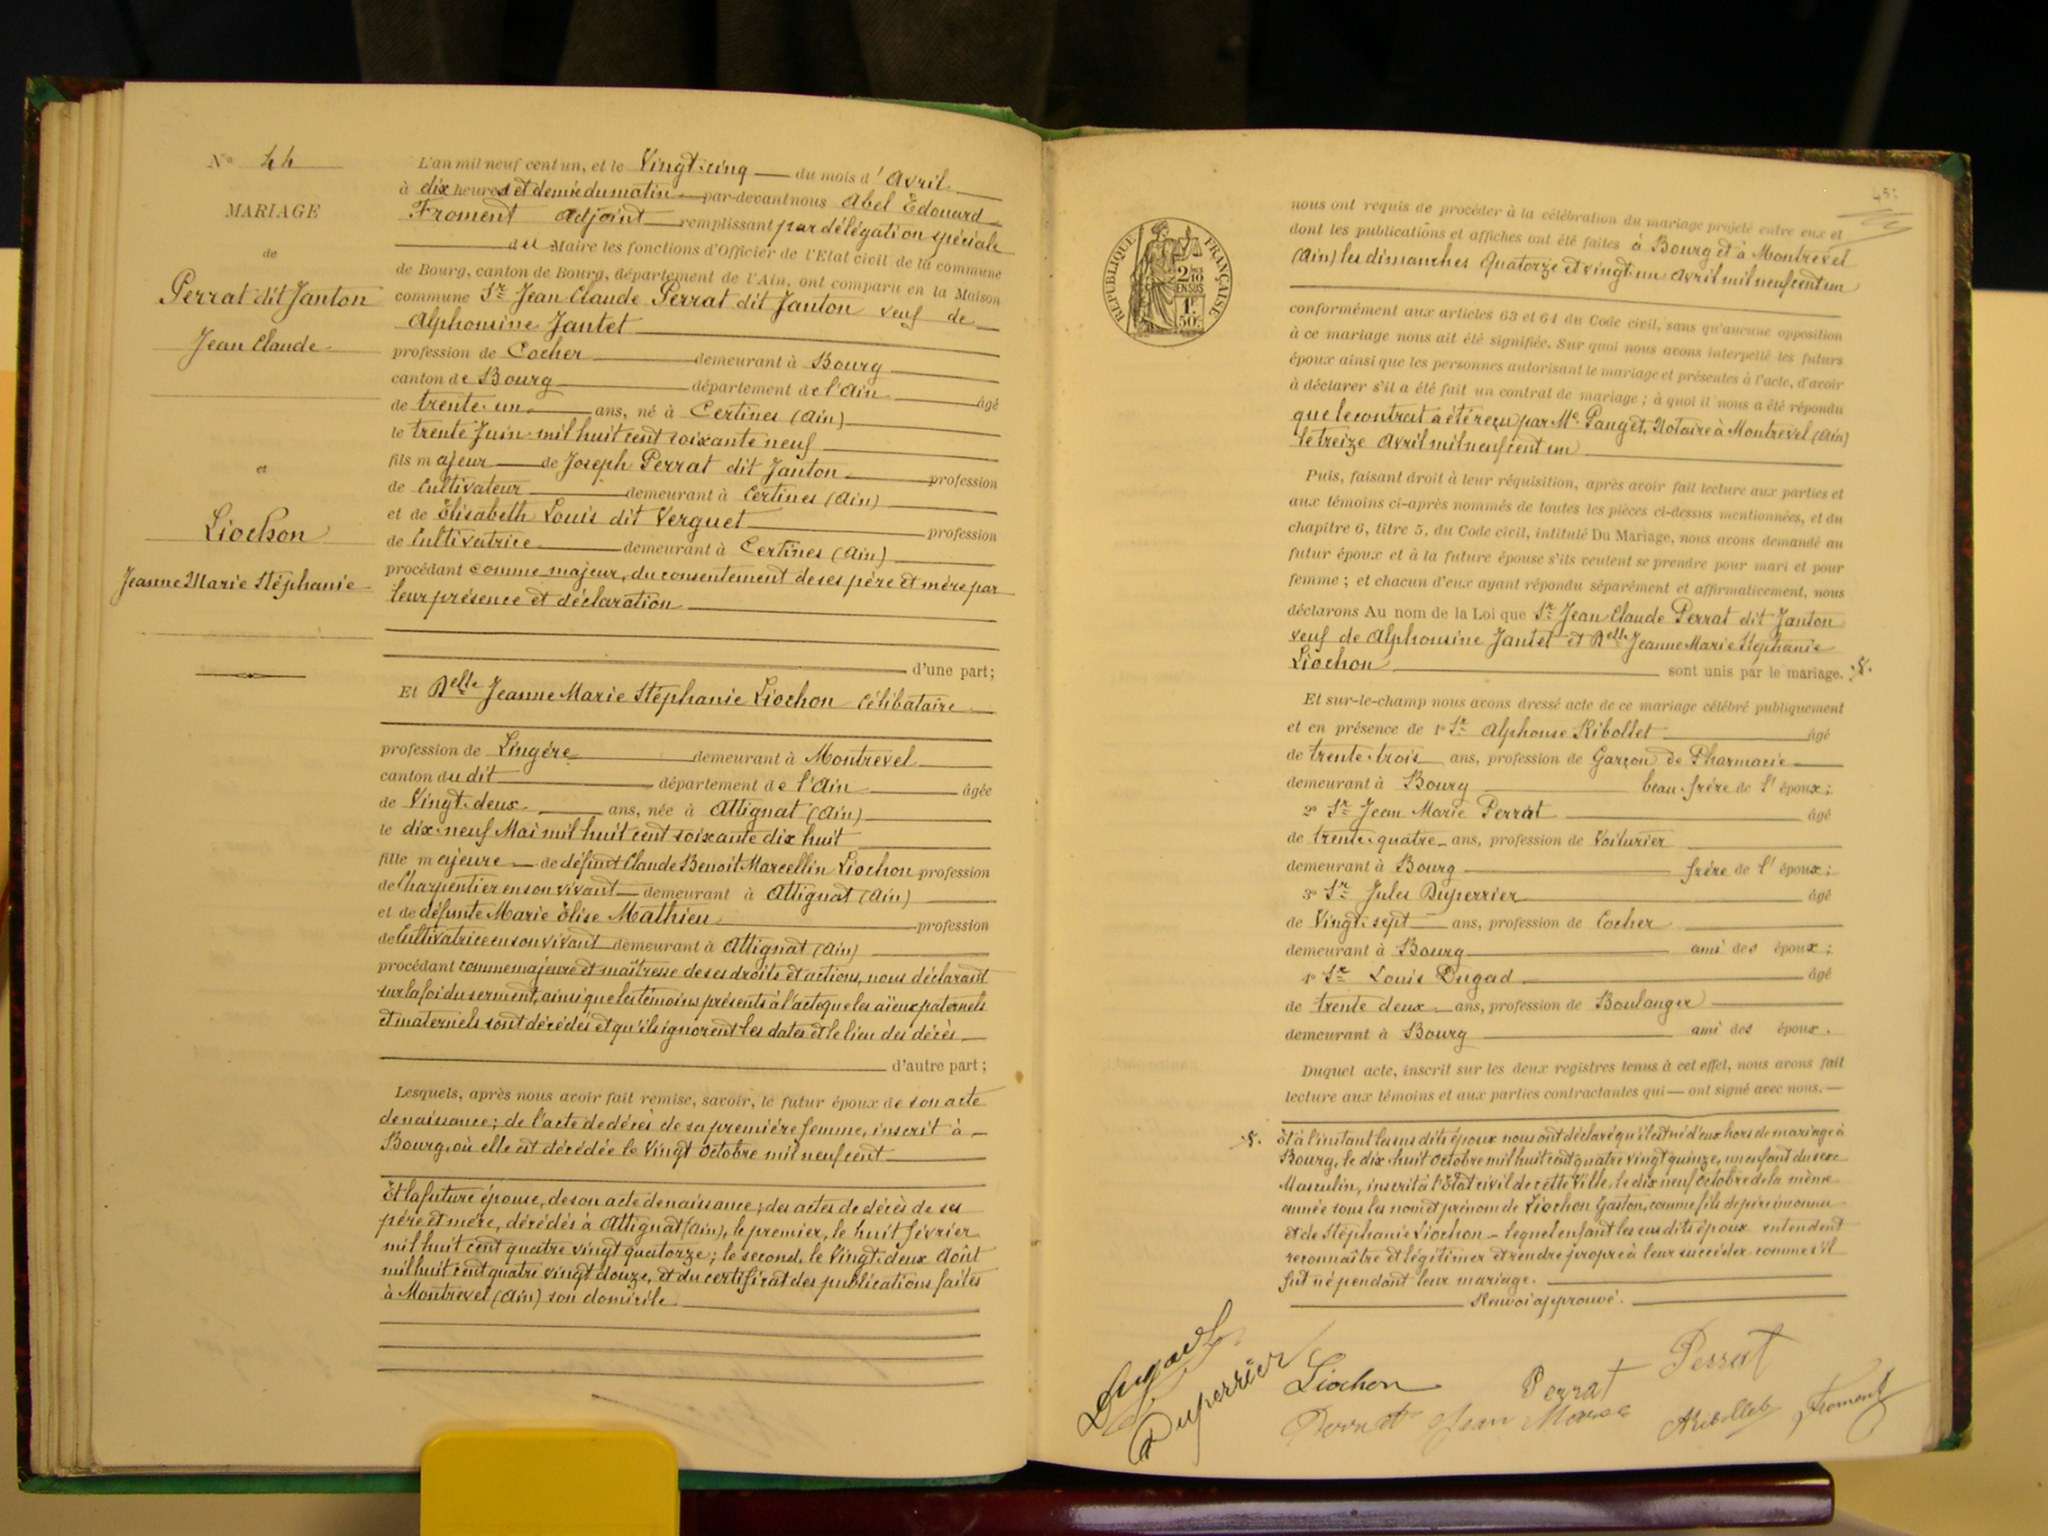 N° 44
MARIAGE
de
Perrat dit Janton
Jean Claude
et
Liochon
Jeanne Marie Stéphanie
L'an mil neuf cent un, et le Vingt-cinq du mois d'Avril
à dix heures et demie du matin par-devant nous Abel Edouard
Froment Adjoint remplissant par délégation spéciale
du Maire les fonctions d'Officier de l'Etat civil de la commune
de Bourg, canton de Bourg, département de l'Ain, ont comparu en la Maison
commune Sr Jean Claude Perrat dit Janton veuf de
Alphonsine Jantet
profession de Cocher demeurant à Bourg
canton de Bourg département de l'Ain âgé
de trente-un ans, né à Certines (Ain)
le trente Juin mil huit cent soixante neuf
fils majeur de Joseph Perrat dit Janton profession
de Cultivateur demeurant à Certines (Ain)
et de Elisabeth Louis dit Verguet profession
de Cultivatrice demeurant à Certines (Ain)
procédant comme majeur, du consentement de ses père et mère par
leur présence et déclaration
d'une part;
Et Delle Jeanne Marie Stéphanie Liochon Célibataire
profession de Lingère demeurant à Montrevel
canton du dit département de l'Ain âgée
de Vingt-deux ans, née à Attignat (Ain)
le dix-neuf Mai mil huit cent soixante dix huit
fille majeure de défunt Claude Benoit Marcellin Liochon profession
de Charpentier en son vivant demeurant à Attignat (Ain)
et de défunte Marie Elise Mathieu profession
de Cultivatrice en son vivant demeurant à Attignat (Ain)
procédant comme majeure et maîtresse de ses droits et actions, nous déclarant
sur la foi du serment, ainsi que les témoins présents à l'acte que les aïeux paternels
et maternels sont décédés et qu'ils ignorent les dates et le lieu des décès
d'autre part;
Lesquels, après nous avoir fait remise, savoir, le futur époux de son acte
de naissance; de l'acte de décès de sa première femme, inscrit à
Bourg, où elle est décédée le Vingt Octobre mil neuf cent
Et la future épouse, de son acte de naissance; des actes de décès de ses
père et mère, décédés à Attignat (Ain), le premier, le huit février
mil huit cent quatre vingt quatorze; le second, le Vingt-deux Août
mil huit cent quatre vingt douze, et du certificat des publications faites
à Montrevel (Ain) son domicile
RÉPUBLIQUE FRANÇAISE
2/10
EN SUS
1F
50C
nous ont requis de procéder à la célébration du mariage projeté entre eux et
dont les publications et affiches ont été faites à Bourg et à Montrevel
(Ain) les dimanches Quatorze et vingt-un Avril mil neuf cent un
conformément aux articles 63 et 64 du Code civil, sans qu'aucune opposition
à ce mariage nous ait été signifiée. Sur quoi nous avons interpellé les futurs
époux ainsi que les personnes autorisant le mariage et présentes à l'acte, d'avoir
à déclarer s'il a été fait un contrat de mariage; à quoi il nous a été répondu
que le contrat a été reçu par Me Panget, Notaire à Montrevel (Ain)
le treize Avril mil neuf cent un
Puis, faisant droit à leur réquisition, après avoir fait lecture aux parties et
aux témoins ci-après nommés de toutes les pièces ci-dessus mentionnées, et du
chapitre 6, titre 5, du Code civil, intitulé Du Mariage, nous avons demandé au
futur époux et à la future épouse s'ils veulent se prendre pour mari et pour
femme; et chacun d'eux ayant répondu séparément et affirmativement, nous
déclarons Au nom de la Loi que Sr Jean Claude Perrat dit Janton
veuf de Alphonsine Jantet et Delle Jeanne Marie Stéphanie
Liochon sont unis par le mariage. .§.
Et sur-le-champ nous avons dressé acte de ce mariage célébré publiquement
et en présence de 1° Sr Alphonse Ribollet âgé
de trente-trois ans, profession de Garçon de Pharmacie
demeurant à Bourg beau-frère de l'époux;
2° Sr Jean Marie Perrat âgé
de trente-quatre ans, profession de Voiturier
demeurant à Bourg frère de l'époux;
3° Sr Jules Duperrier âgé
de Vingt-sept ans, profession de Cocher
demeurant à Bourg ami des époux;
4° Sr Louis Dugad âgé
de trente deux ans, profession de Boulanger
demeurant à Bourg ami des époux.
Duquel acte, inscrit sur les deux registres tenus à cet effet, nous avons fait
lecture aux témoins et aux parties contractantes qui — ont signé avec nous.
.§. Et à l'instant les sus dits époux nous ont déclaré qu'il est né d'eux hors de mariage à
Bourg, le dix-huit Octobre mil huit cent quatre vingt quinze, un enfant du sexe
Masculin, inscrit à l'Etat civil de cette Ville, le dix neuf Octobre de la même
année sous les nom et prénom de Liochon Gaston, comme fils de père inconnu
et de Stéphanie Liochon - lequel enfant les sus dits époux entendent
reconnaître et légitimer et rendre propre à leur succéder comme s'il
fut né pendant leur mariage.
Renvoi approuvé.
Dugad
Duperrier
Liochon
Perrat
Perrat
Perrat Jean Marie
ARibollet
Froment